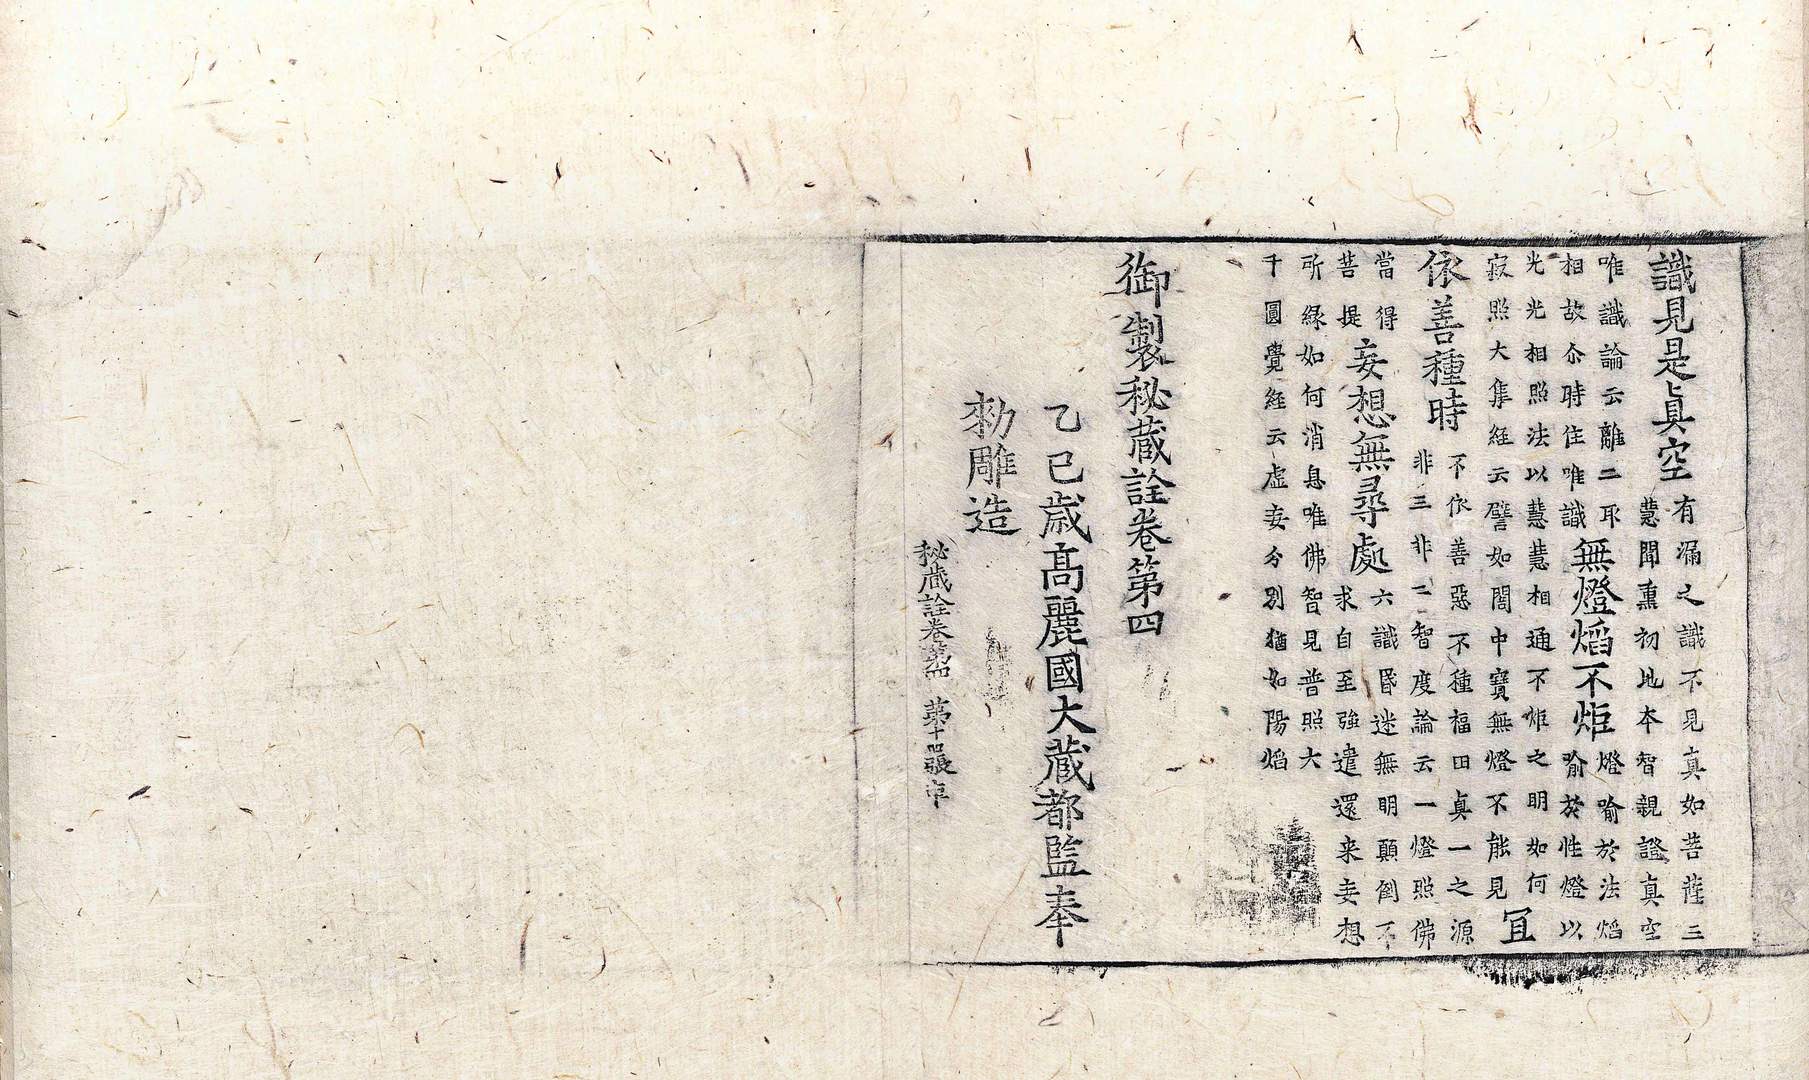 識見是眞空有漏之識不見真如菩薩三
慧聞熏初地本智親證真空
唯識論云離二耴
相故尒時住唯識無燈焰不炬燈喻於法焰
喻於性燈以
光光相照法以慧慧相通不炬之明如何
寂照大集經云譬如闇中寶無燈不能見宜
依善種時不依善惡不種福田真一之源
非三非二智度論云一燈照佛
當得
菩提妄想無尋處六識昏迷無明顛倒不
求自至強遣還来妄想
所緣如何消息唯佛智見普照大
千圓覺經云虛妄分別猶如陽焰
御製秘蔵詮卷第四
乙巳歲高麗國大藏都監奉
勑雕造
秘蔵詮卷第四 第十四張